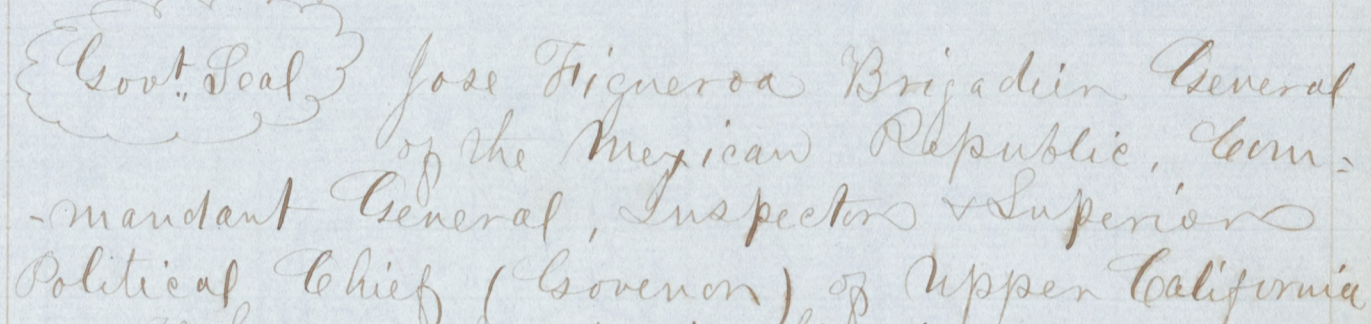 Govt. Seal Jose Figueroa Brigadier General
of the Mexican Republic, Com-
-mandant General, Inspector & Superior
Political Chief (Govenor) of Upper California